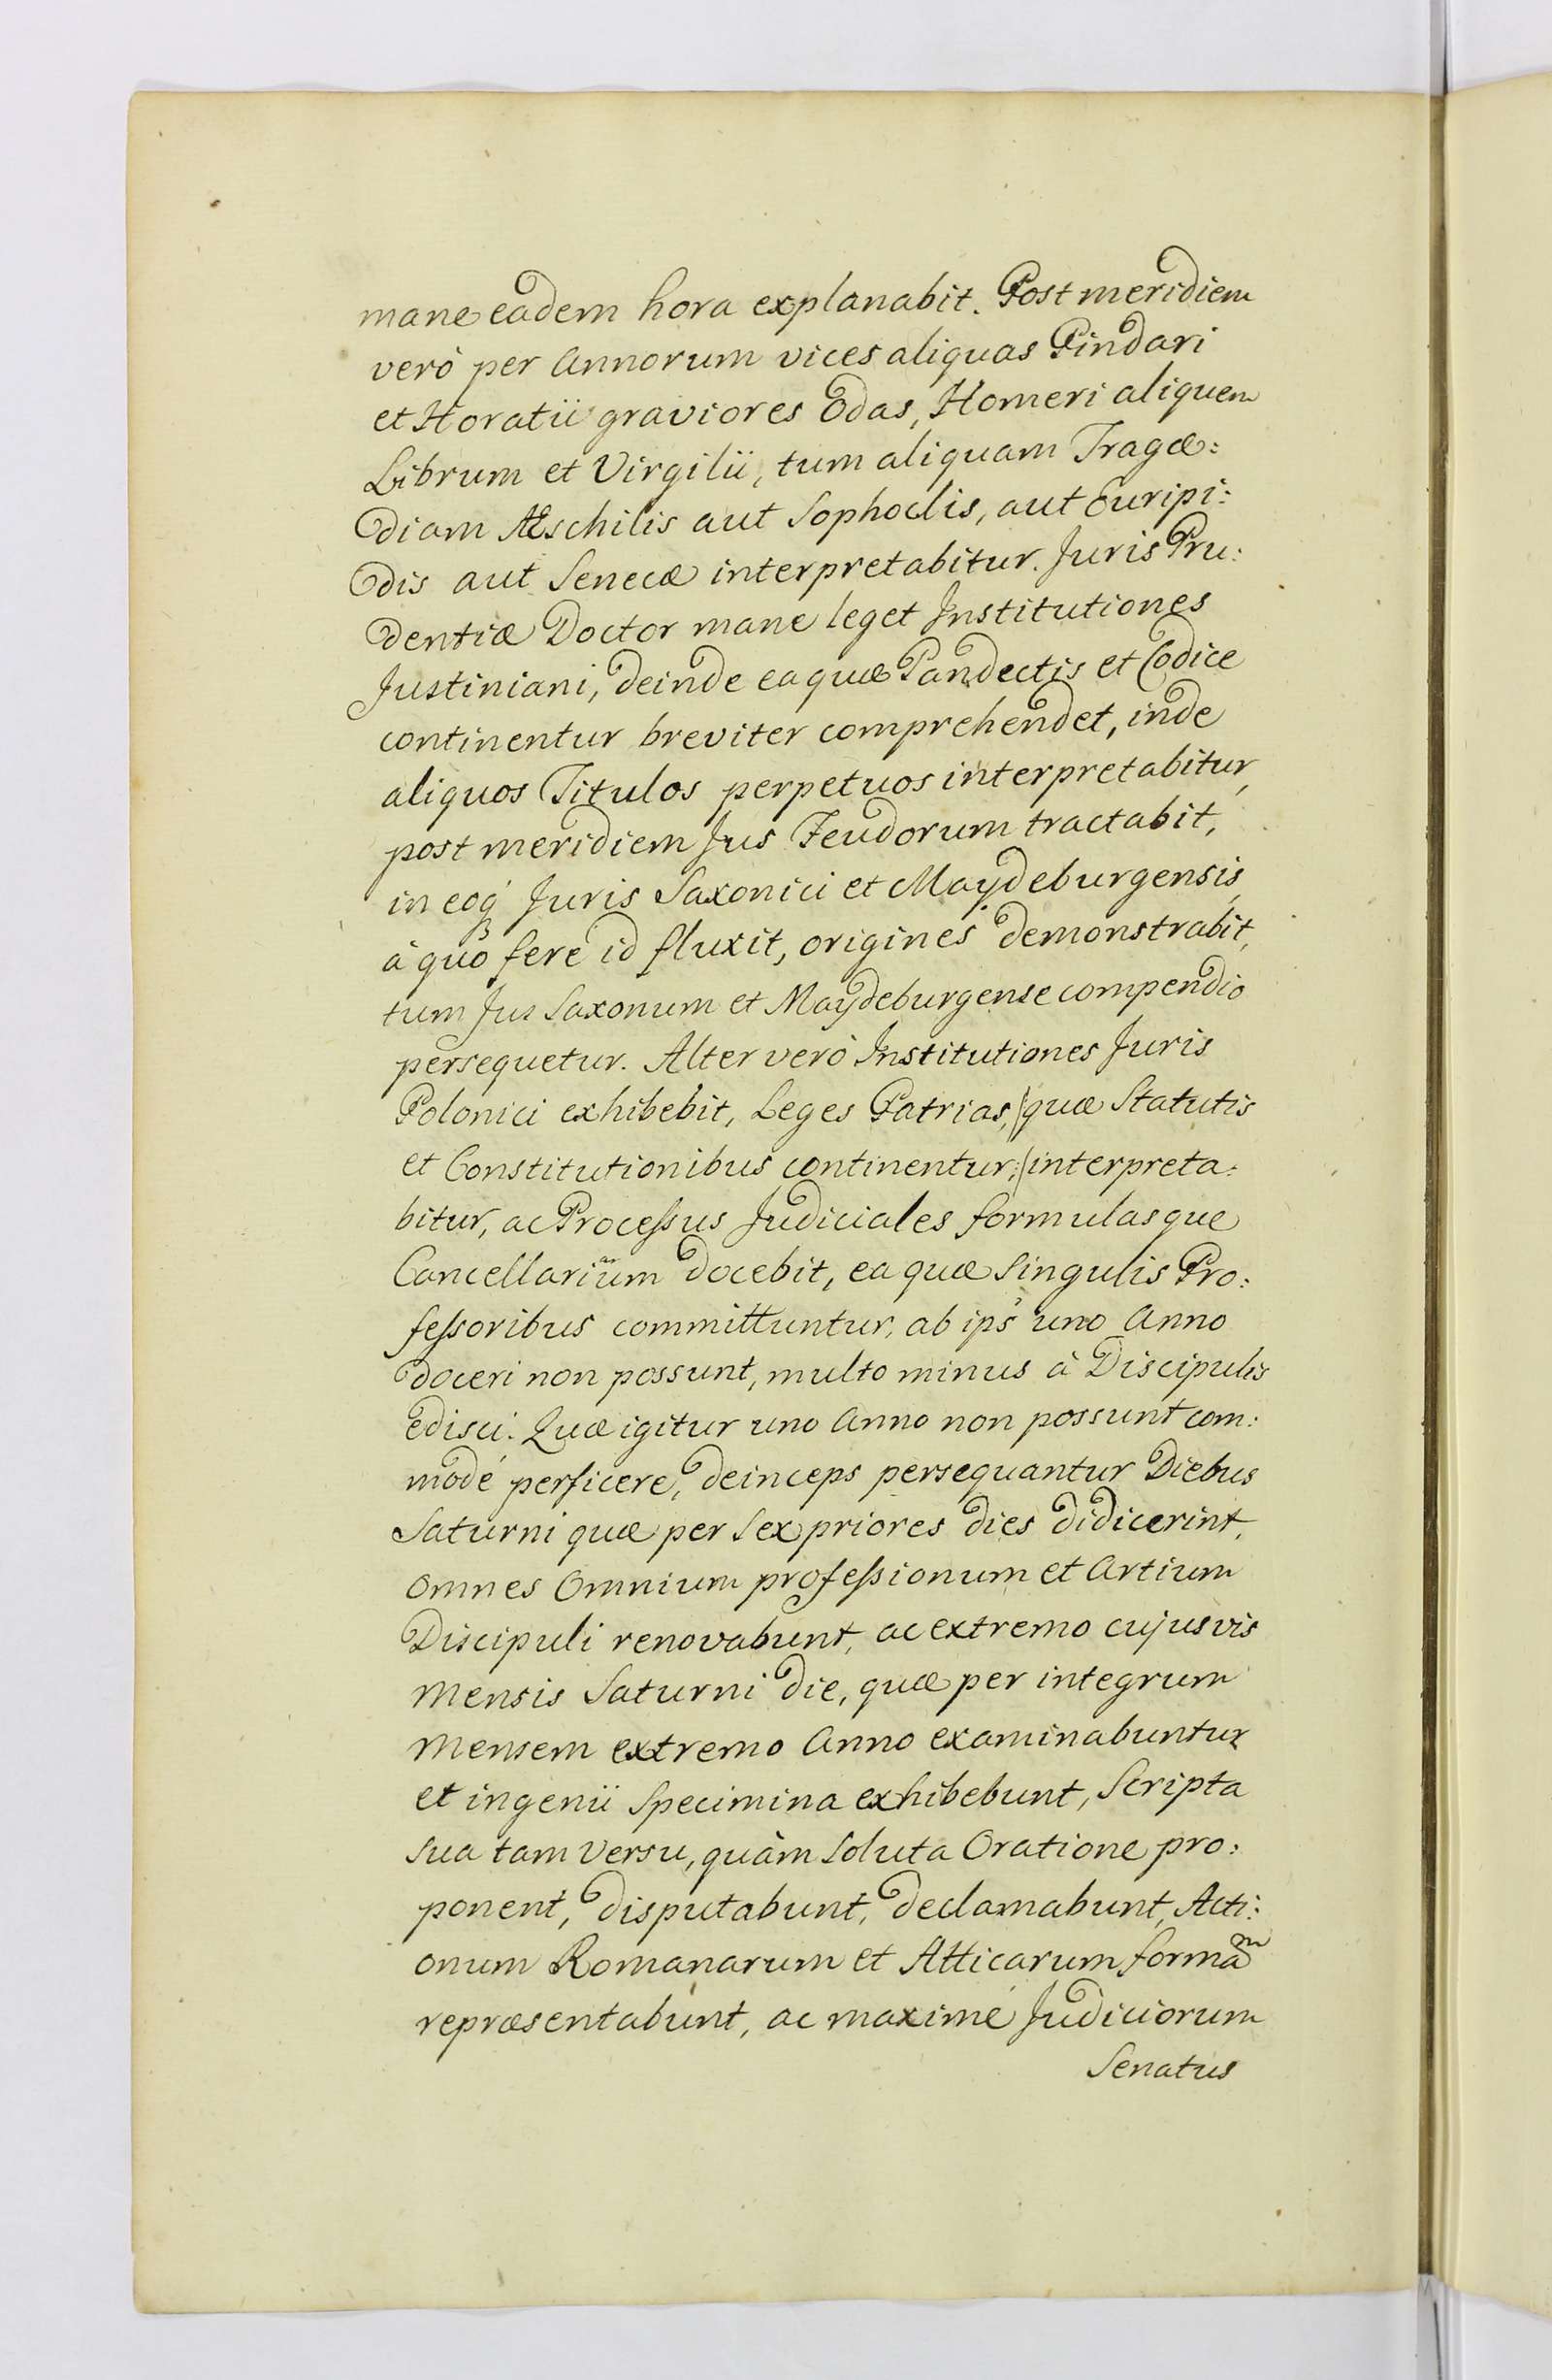 mane eadem hora explanabit. Post meridiem
verò per Annorum vices aliquas Pindari
et Horatii graviores Odas, Homeri aliquem
Librum et Virgilii, tum aliquam Tragæ:
diam Æschilis aut Sophoclis, aut Euripi:
dis aut Senecæ interpretabitur. Juris Pru:
dentiæ Doctor mane leget Institutiones
Justiniani, deinde ea quæ Pandectis et Codice
continentur breviter comprehendet, inde
aliquos Titulos perpetuos interpretabitur,
post meridiem Jus Feudorum tractabit,
in eoq́ Juris Saxonici et Maydeburgensis,
à quo fere id fluxit, origines demonstrabit,
tum Jus Saxonum et Maydeburgense compendio
persequetur. Alter verò Institutiones Juris
Polonici exhibebit, Leges Patrias, (quæ Statutis
et Constitutionibus continentur:(interpreta:
bitur, ac Processus Judiciales formulasque
Cancellariarum docebit, ea quæ singulis Pro:
fessoribus committuntur, ab ips' uno Anno
doceri non possunt, multo minus à Discipulis
edisci. Quæ igitur uno Anno non possunt com:
modé perficere, deinceps persequantur Diebus
Saturni quæ per sex priores dies didicerint,
omnes Omnium professionum et Artium
Discipuli renovabunt, ac extremo cujusvis
Mensis Saturni die, quæ per integrum
Mensem extremo Anno examinabuntur
et ingenii Specimina exhibebunt, Scripta
sua tam versu, quàm soluta Oratione pro:
ponent, disputabunt, declamabunt, Acti:
onum Romanarum et Atticarum formam
repræsentabunt, ac maximé Judiciorum
Senatus